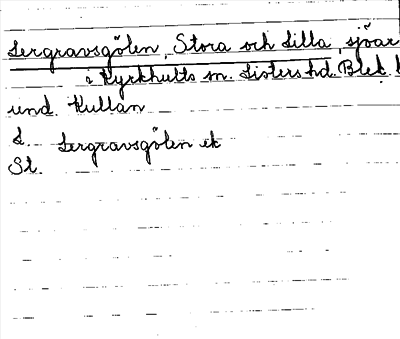 Lergravsgölen, Stora och Lilla, sjöar
i Kyrkhults sn. Listers hd. Blek. l
und. Kullan
L. Lergravsgölen ek
St.